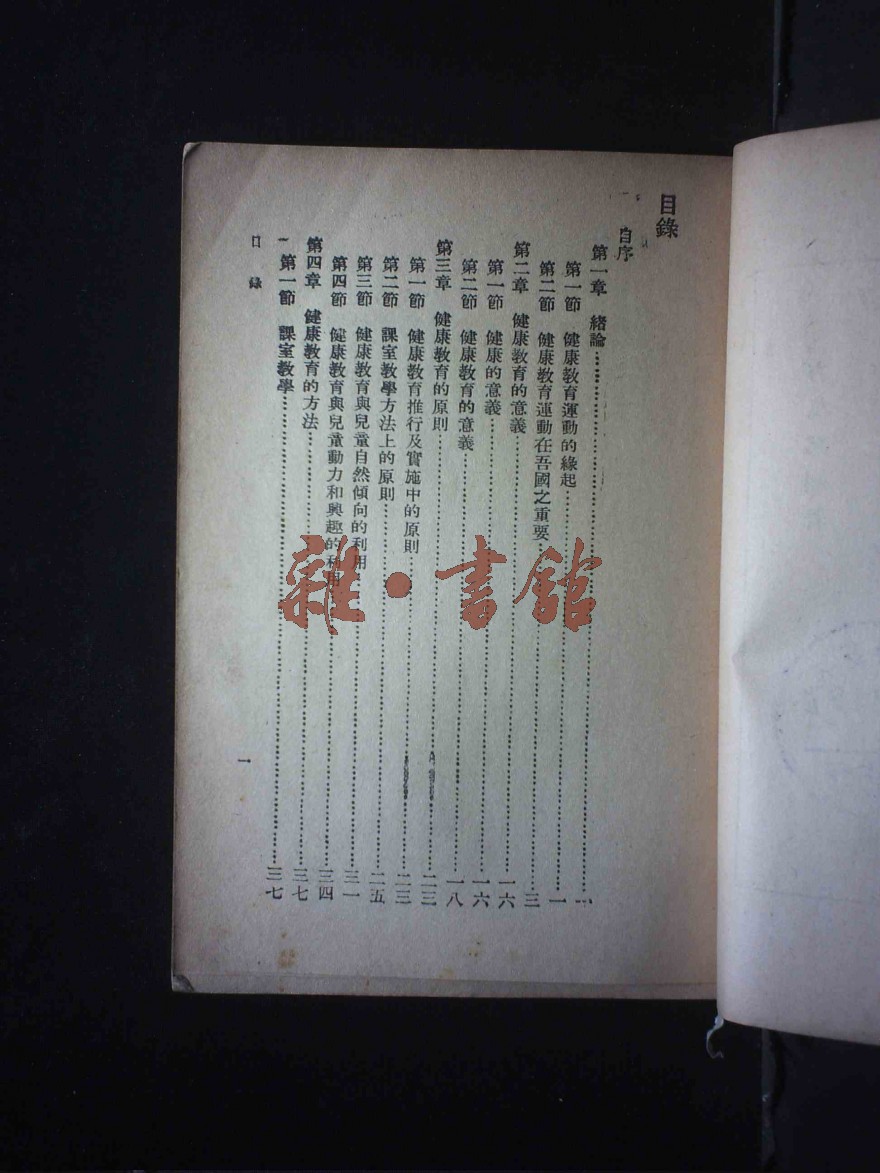 目錄
自序
第一章 緒論……一
第一節 健康教育運動的緣起……一
第二節 健康教育運動在吾國之重要……三
第二章 健康教育的意義……一六
第一節 健康的意義……一六
第二節 健康教育的意義……一八
第三章 健康教育的原則……二三
第一節 健康教育推行及實施中的原則……二三
第二節 課室教學方法上的原則……二五
第三節 健康教育與兒童自然傾向的利用……三一
第四節 健康教育與兒童動力和興趣的利用……三四
第四章 健康教育的方法……三七
第一節 課室教學……三七
目錄
一
雜·書館